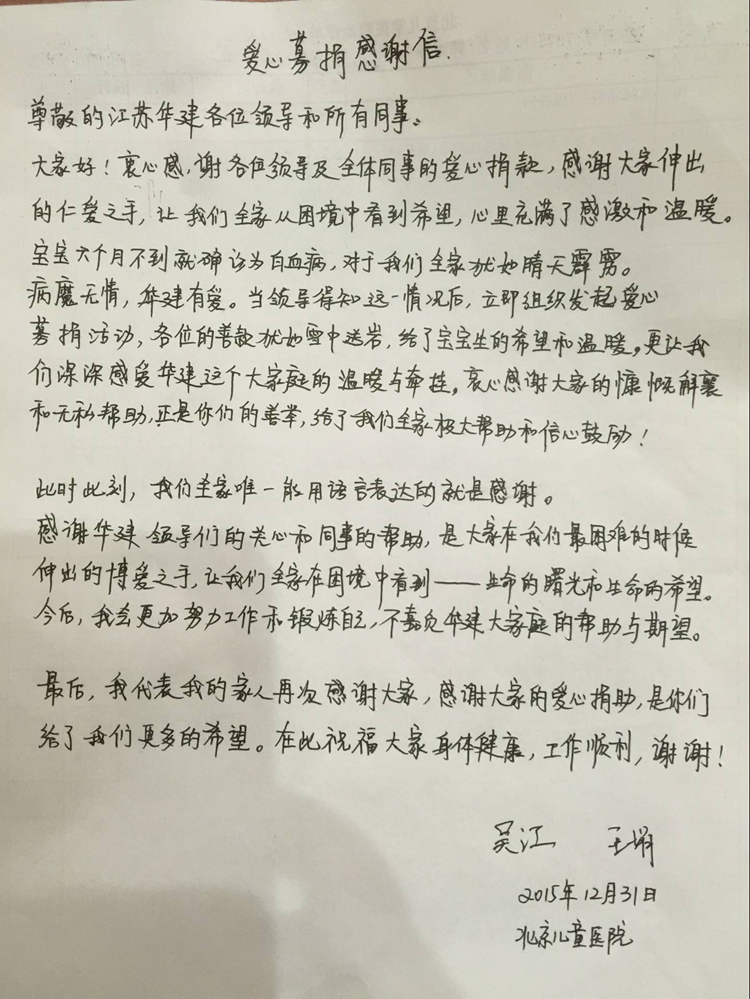 爱心募捐感谢信.
尊敬的江苏华建各位领导和所有同事。
大家好！衷心感谢各位领导及全体同事的爱心捐款，感谢大家伸出
的仁爱之手，让我们全家从困境中看到希望，心里充满了感激和温暖。
宝宝六个月不到就确诊为白血病，对于我们全家犹如晴天霹雳。
病魔无情，华建有爱。当领导得知这一情况后，立即组织发起爱心
募捐活动，各位的善款犹如雪中送炭，给了宝宝生的希望和温暖。更让我
们深深感受华建这个大家庭的温暖与牵挂。衷心感谢大家的慷慨解囊
和无私帮助，正是你们的善举，给了我们全家极大帮助和信心鼓励！
此时此刻，我们全家唯一能用语言表达的就是感谢。
感谢华建领导们的关心和同事的帮助，是大家在我们最困难的时候
伸出的博爱之手，让我们全家在困境中看到——生命的曙光和生命的希望。
今后，我会更加努力工作和锻炼自己，不辜负华建大家庭的帮助与期望。
最后，我代表我的家人再次感谢大家，感谢大家的爱心捐助，是你们
给了我们更多的希望。在此祝福大家身体健康，工作顺利，谢谢！
吴江 王
2015年12月31日
北京儿童医院